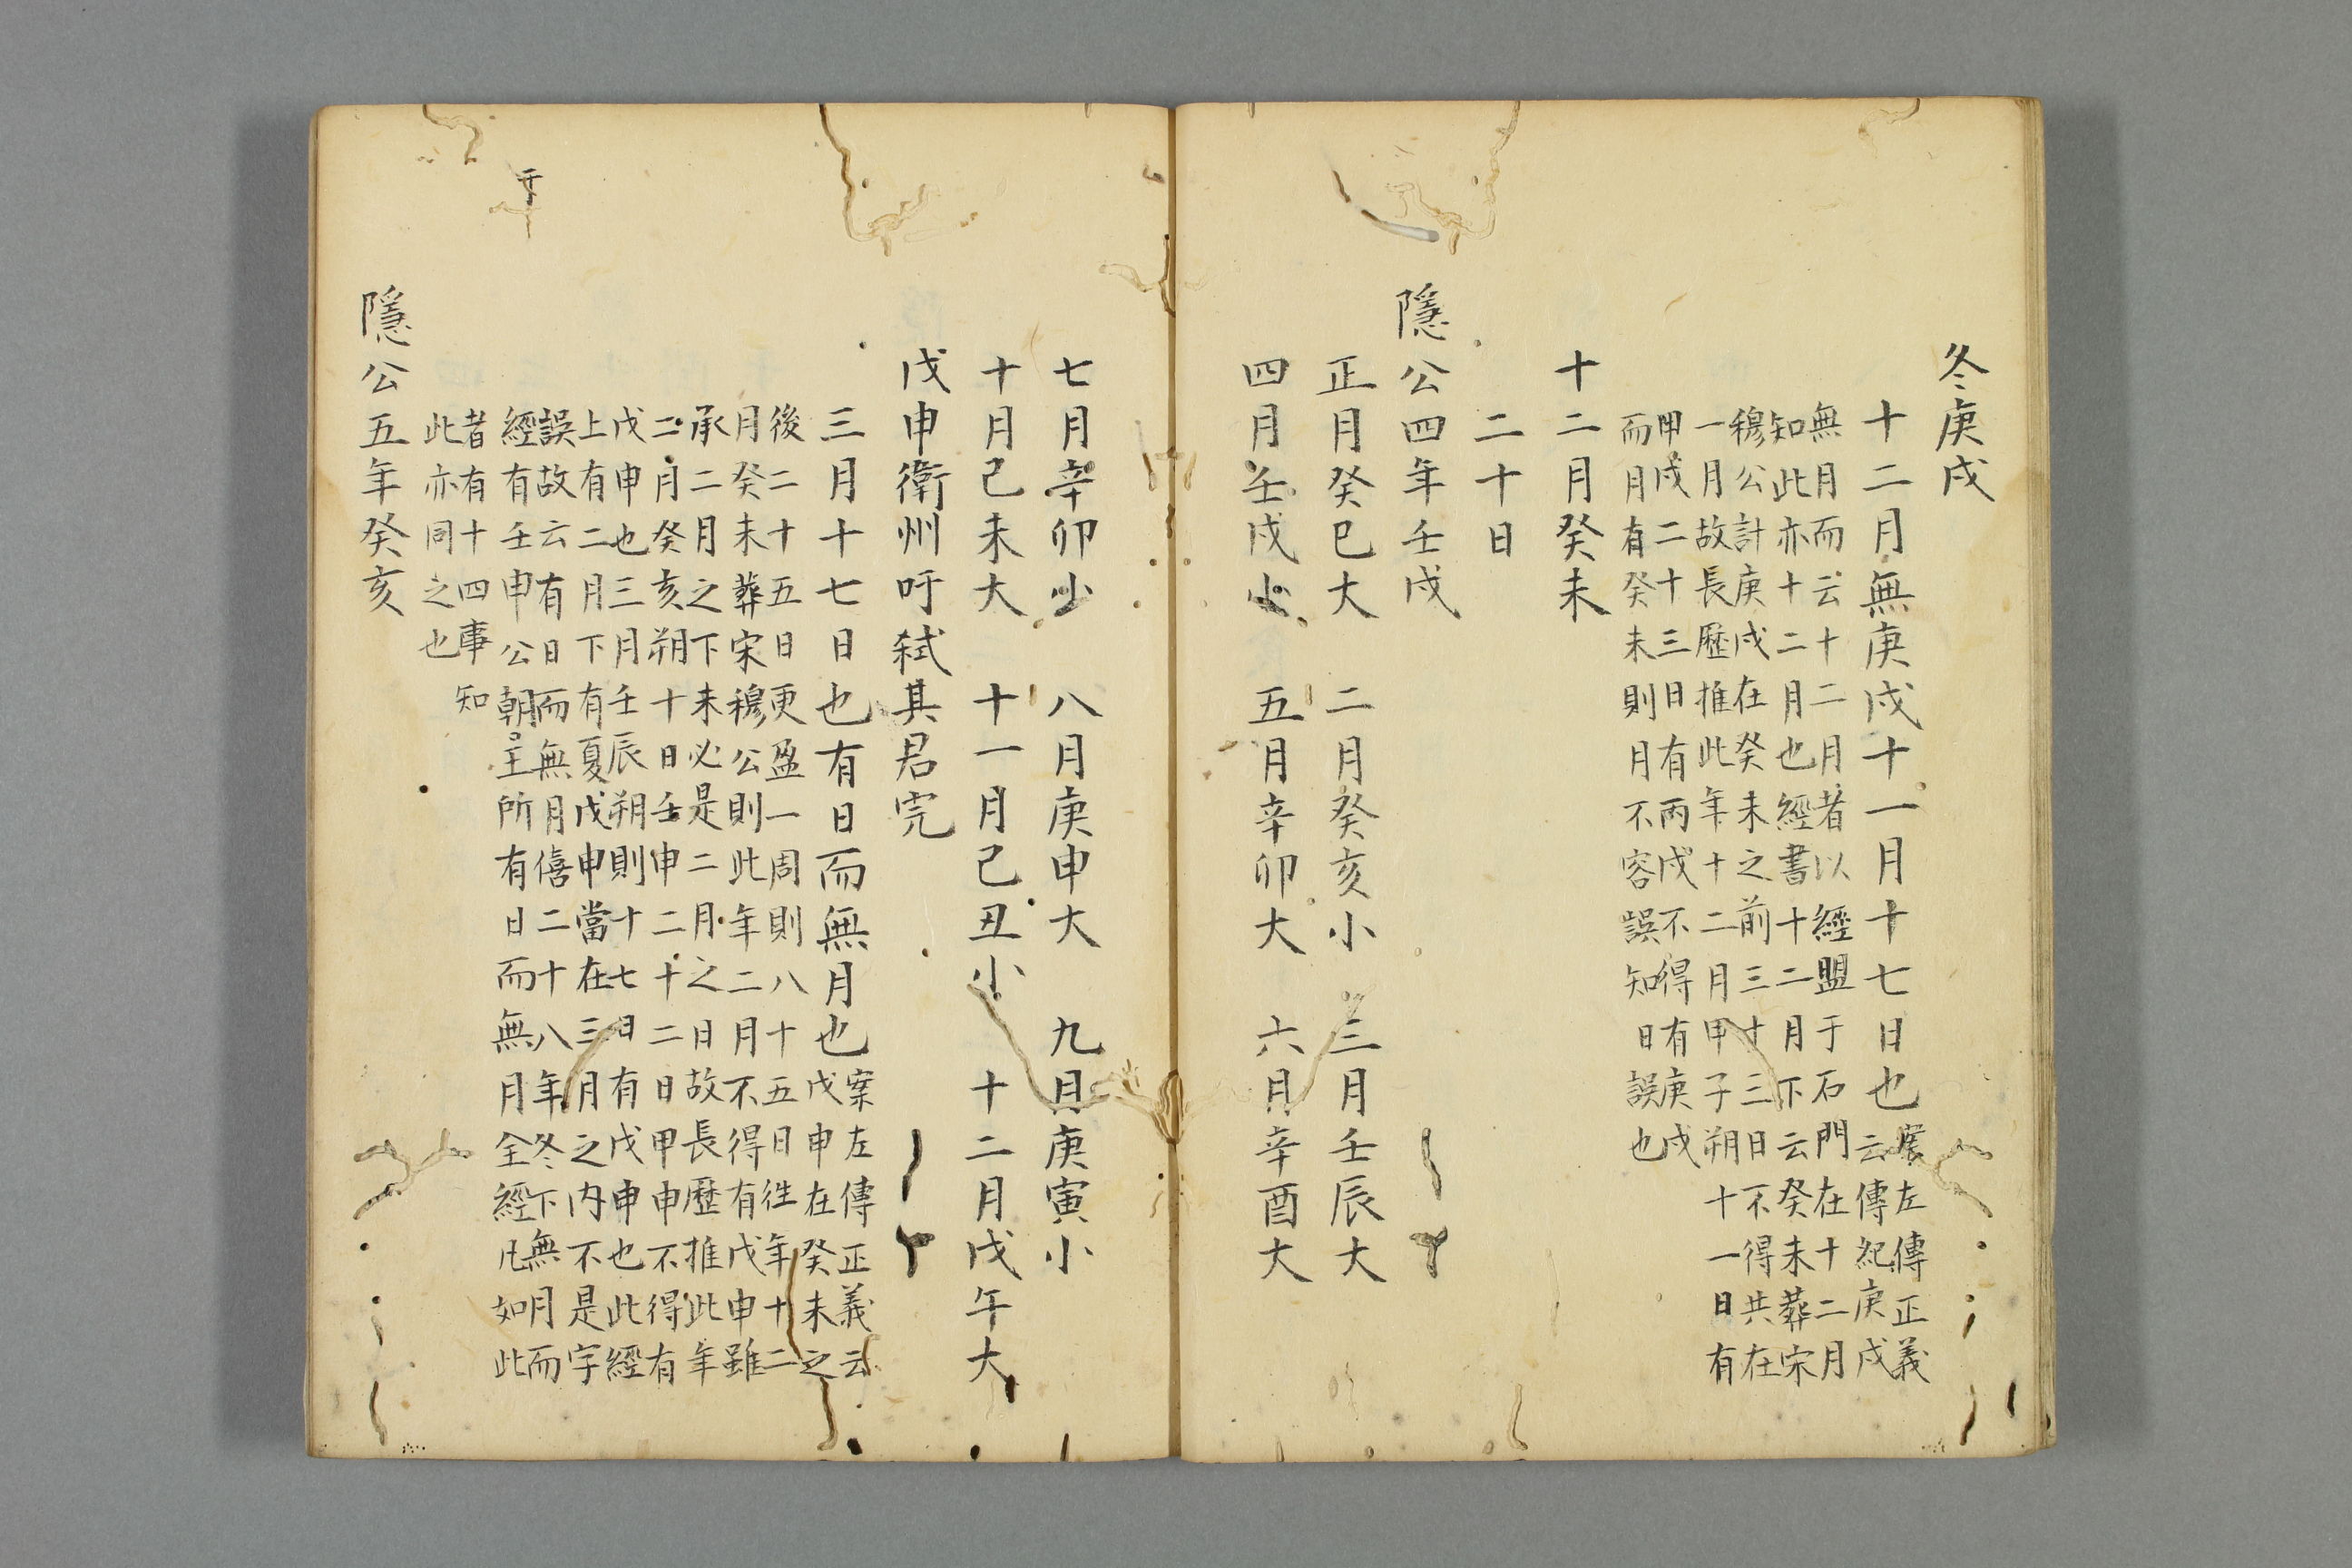 冬庚戌
十二月無庚戌十一月十七日也案左傳正義
云傳紀庚戌
無月而云十二月者以經盟于石門在十二月
知此亦十二月也經書十二月下云癸未葬宋
穆公計庚戌在癸未之前三十三日不得共在
一月故長歷推此年十二月甲子朔十一日有
甲戌二十三日有丙戌不得有庚戌
而月有癸未則月不容誤知日誤也
十二月癸未
二十日
隱公四年壬戌
正月癸巳大　二月癸亥小　三月壬辰大
四月壬戌小　五月辛卯大　六月辛酉大
七月辛卯少　八月庚申大　九月庚寅小
十月己未大　十一月己丑小　十二月戊午大
戊申衛州吁弑其君完
三月十七日也有日而無月也案左傳正義云
戊申在癸未之
後二十五日更盈一周則八十五日徃年十二
月癸未葬宋穆公則此年二月不得有戊申雖
承二月之下未必是二月之日故長歷推此年
二月癸亥朔十日壬申二十二日甲申不得有
戊申也三月壬辰朔則十七日有戊申也此經
上有二月下有夏戊申當在三月之内不是字
誤故云有日而無月僖二十八年冬下無月而
經有壬申公朝王所有日而無月全經凡如此
者有十四事知
此亦同之也
隱公五年癸亥
于